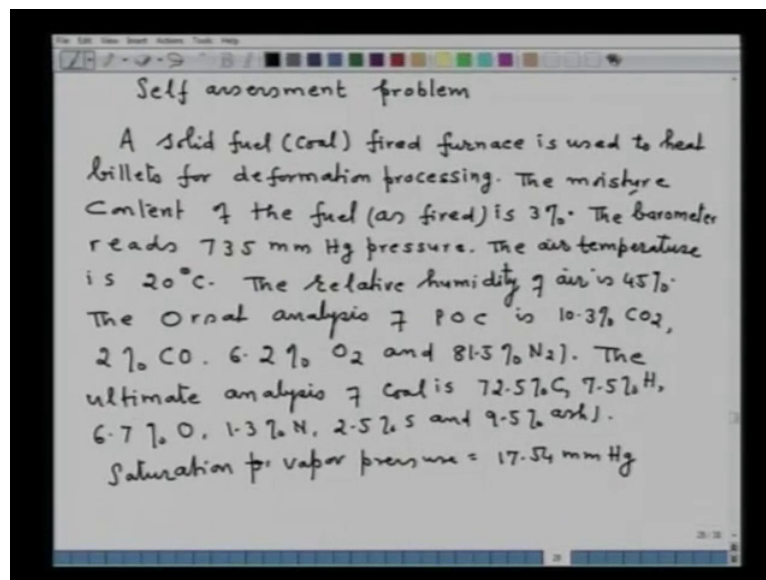 File Edit View Insert Actions Tools Help
Self assessment problem
A solid fuel (coal) fired furnace is used to heat
billets for deformation processing. The moisture
Content of the fuel (as fired) is 3%. The barometer
reads 735 mm Hg pressure. The air temperature
is 20°C. The relative humidity of air is 45%.
The Orsat analysis of POC is 10.3% CO2,
2% CO. 6.2% O2 and 81.5% N2). The
ultimate analysis of Coal is 72.5% C, 7.5% H,
6.7% O, 1.3% N, 2.5% S and 9.5% ash).
Saturation vapor pressure = 17.54 mm Hg